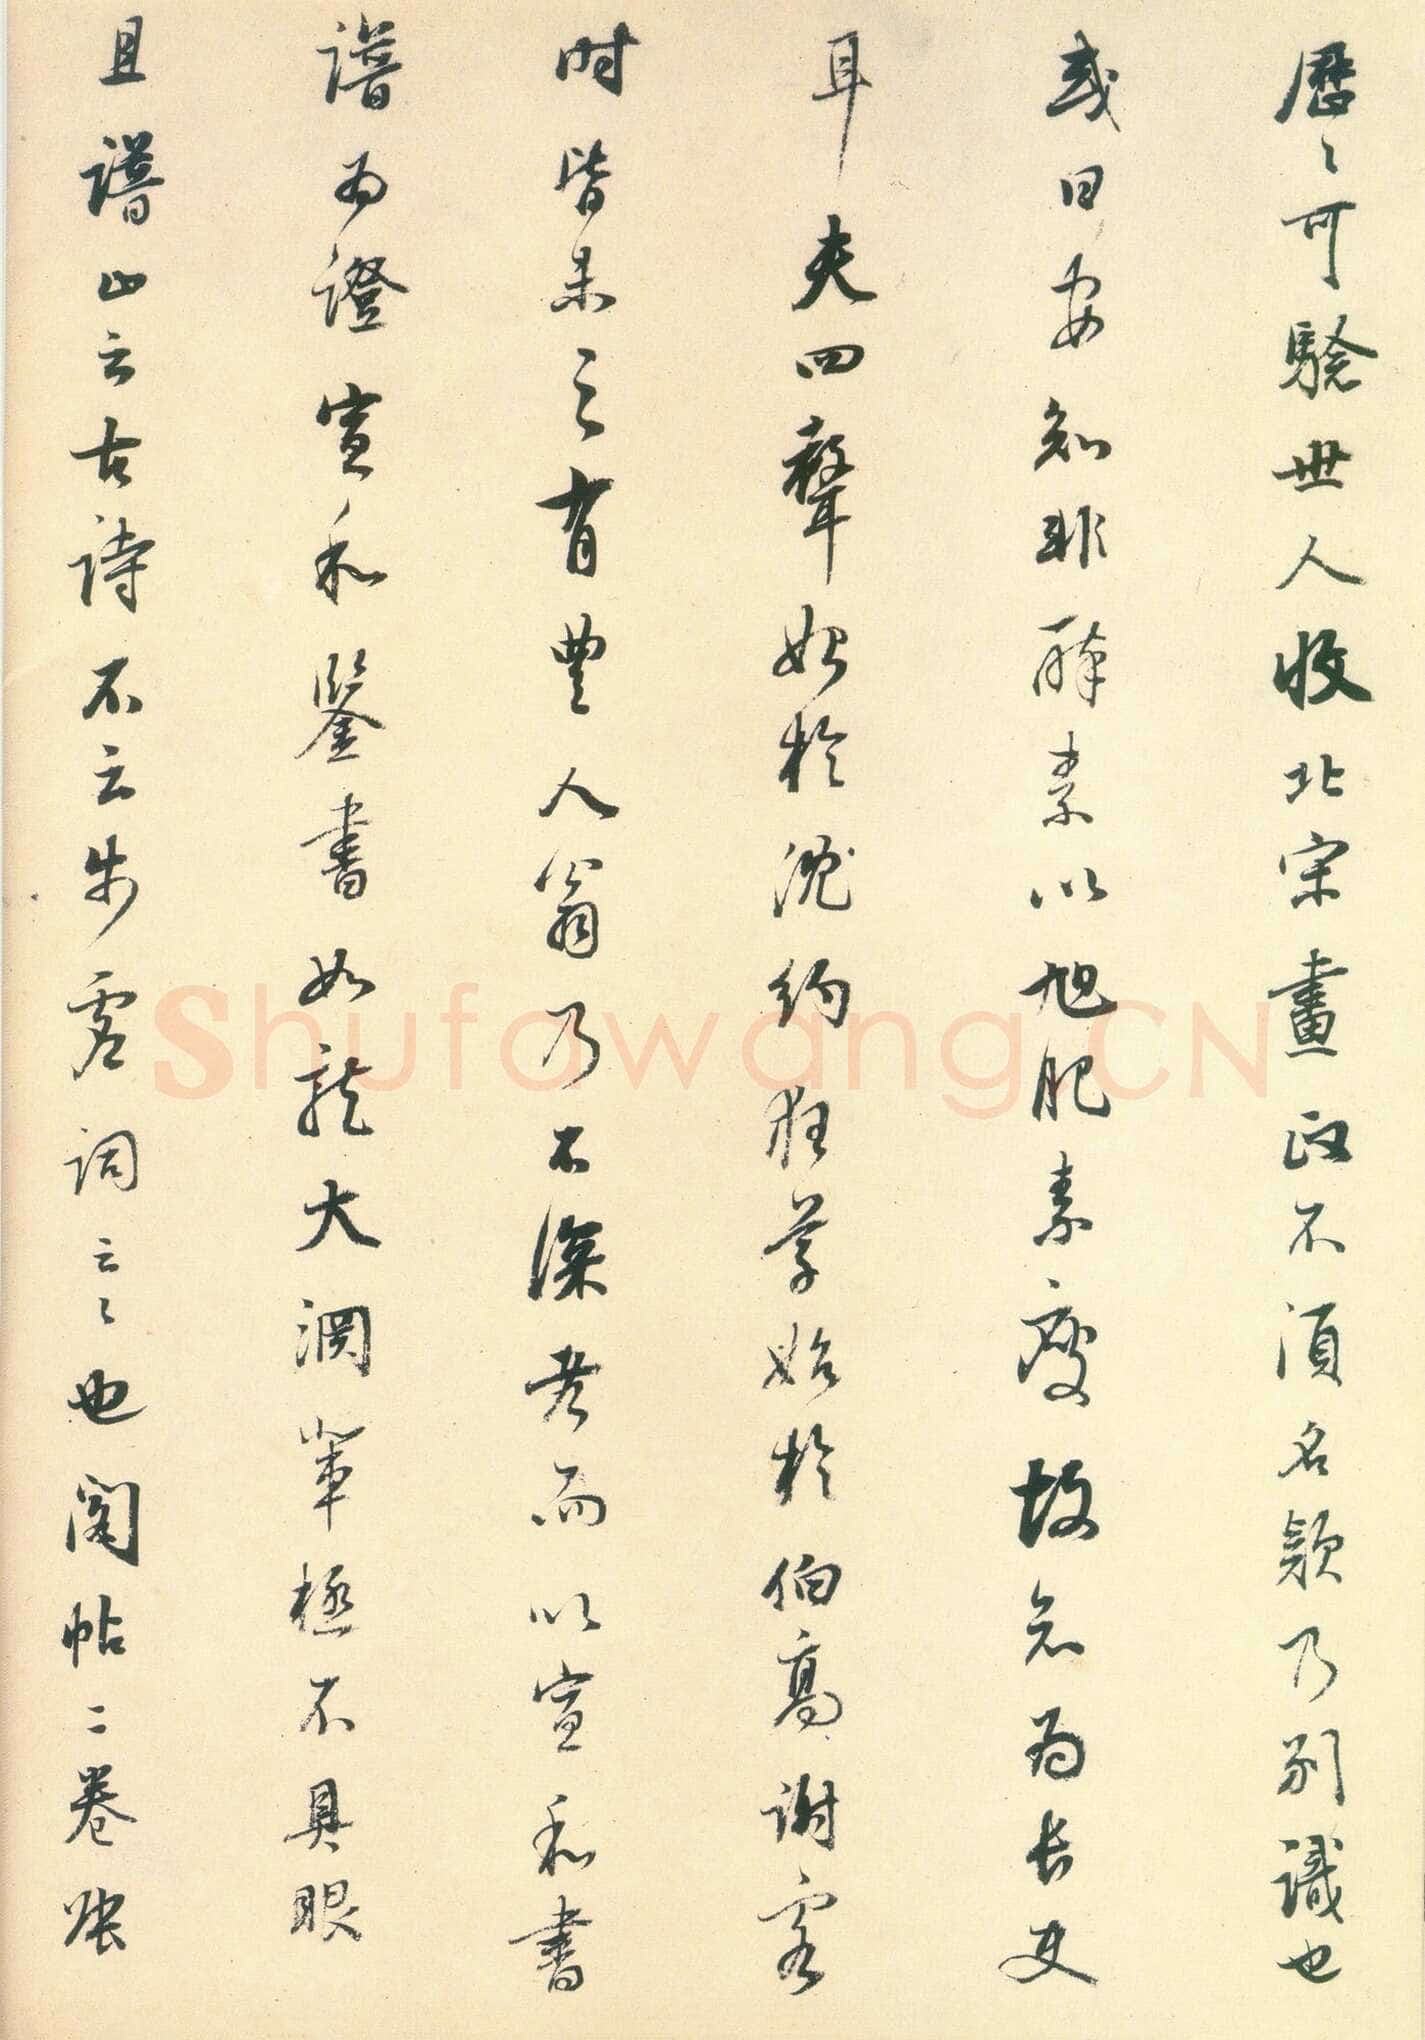 歷〻可驗世人收北宋畫政不須名款乃別識也
或曰安知非醉素以旭肥素瘦故知為長史
耳夫四聲始於沈約狂草始於伯高謝客
時皆未之有豐人翁乃不深考而以宣和書
譜為證宣和鑒書如龍大淵輩極不具眼
且譜止云古詩不云步虛詞云〻也閣帖二卷張
Shufawang.CN